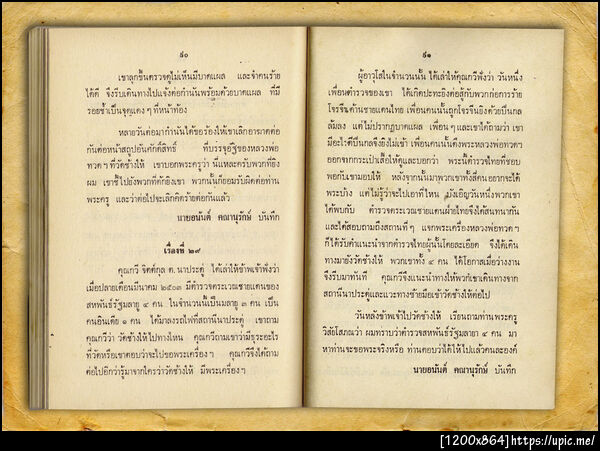 ๙๐
เขาลุกขึ้นตรวจดูไม่เห็นมีบาดแผล และจำคนร้าย
ได้ดี จึงรีบเดินทางไปแจ้งต่อกำนันพร้อมด้วยบาดแผล ที่มี
รอยช้ำเป็นจุดแดง ๆ ที่หน้าท้อง
หลายวันต่อมากำนันได้ขอร้องให้เขาเลิกอาฆาตต่อ
กันต่อหน้าสถูปอันศักดิ์สิทธิ์ ที่บรรจุอัฐิของหลวงพ่อ
ทวดฯ ที่วัดช้างให้ เขาบอกพระครูว่า นี่แหละครับพวกที่ยิง
ผม เขาชี้ไปยังพวกที่ดักยิงเขา พวกนั้นก็ยอมรับผิดต่อท่าน
พระครู และว่าต่อไปจะเลิกคิดร้ายต่อกันแล้ว
นายอนันต์ คณานุรักษ์ บันทึก
เรื่องที่ ๒๙
คุณกวี จิตต์กูล ต. นาประดู่ ได้เล่าให้ข้าพเจ้าฟังว่า
เมื่อปลายเดือนมีนาคม ๒๕๐๓ มีตำรวจตระเวนชายแดนของ
สหพันธ์รัฐมลายู ๔ คน ในจำนวนนั้นเป็นมลายู ๓ คน เป็น
คนอินเดีย ๑ คน ได้มาลงรถไฟที่สถานีนาประดู่ เขาถาม
คุณกวีว่า วัดช้างให้ไปทางไหน คุณกวีถามเขาว่ามีธุระอะไร
ที่วัดหรือเขาตอบว่าจะไปขอพระเครื่องฯ คุณกวีจึงได้ถาม
ต่อไปอีกว่ารู้มาจากใครว่าวัดช้างให้ มีพระเครื่องฯ
๙๑
ผู้อาวุโสในจำนวนนั้น ได้เล่าให้คุณกวีฟังว่า วันหนึ่ง
เพื่อนตำรวจของเขา ได้เกิดปะทะยิงต่อสู้กับพวกก่อการร้าย
โจรจีนด้านชายแดนไทย เพื่อนคนนั้นถูกโจรจีนยิงด้วยปืนกล
ล้มลง แต่ไม่ปรากฏบาดแผล เพื่อน ๆ และเขาได้ถามว่า เขา
มีอะไรดีปืนกลจึงยิงไม่เข้า เพื่อนคนนั้นดึงพระหลวงพ่อทวดฯ
ออกจากกระเป๋าเสื้อให้ดูและบอกว่า พระนี้ตำรวจไทยที่ชอบ
พอกันเขามอบให้ หลังจากนั้นมาพวกเขาทั้งสี่คนอยากจะได้
พระบ้าง แต่ไม่รู้ว่าจะไปเอาที่ไหน บังเอิญวันหนึ่งพวกเขา
ได้พบกับ ตำรวจตระเวนชายแดนฝ่ายไทยจึงได้สนทนากัน
และได้สอบถามถึงสถานที่ ๆ แจกพระเครื่องหลวงพ่อทวดฯ
ก็ได้รับคำแนะนำจากตำรวจไทยผู้นั้นโดยละเอียด จึงได้เดิน
ทางมายังวัดช้างให้ พวกเขาทั้ง ๔ คน ได้โอกาสเมื่อว่างงาน
จึงรีบมาทันที คุณกวีจึงแนะนำทางให้พวกเขาเดินทางจาก
สถานีนาประดู่และแวะทางซ้ายมือเข้าวัดช้างให้ต่อไป
วันหลังข้าพเจ้าไปวัดช้างให้ เรียนถามท่านพระครู
วิสัยโสภณว่า ผมทราบว่าตำรวจสหพันธ์รัฐมลายา ๔ คน มา
หาท่านจะขอพระจริงหรือ ท่านตอบว่าได้ให้ไปแล้วคนละองค์
นายอนันต์ คณานุรักษ์ บันทึก
[1200x864]https://upic.me/